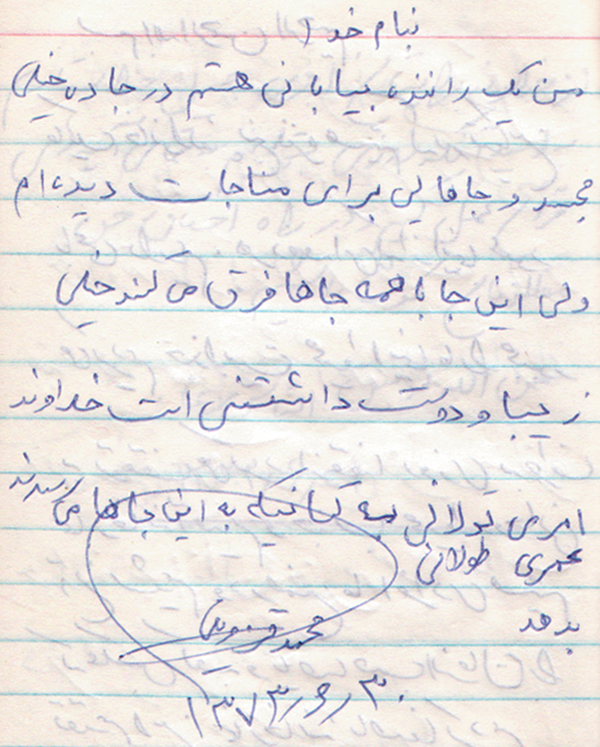 بنام خدا
من یک راننده بیابانی هستم در جاده خیلی
مجسد و جاهایی برای مناجات دیده ام
ولی این جا با همه جاها فرق می کند خیلی
زیبا و دوست داشتنی است خداوند
امری تولانی به کسانیکه به این جاها می رسند
عمری طولانی
بدهد
محمد
۱۳۷۳/۶/۳۰